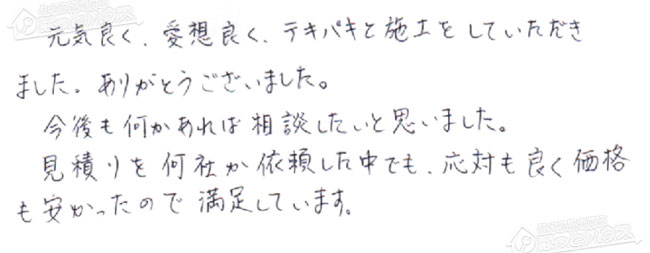 元気良く、愛想良く、テキパキと施工をしていただき
ました。ありがとうございました。
今後も何かあれば相談したいと思いました。
見積りを何社か依頼した中でも、応対も良く価格
も安かったので満足しています。